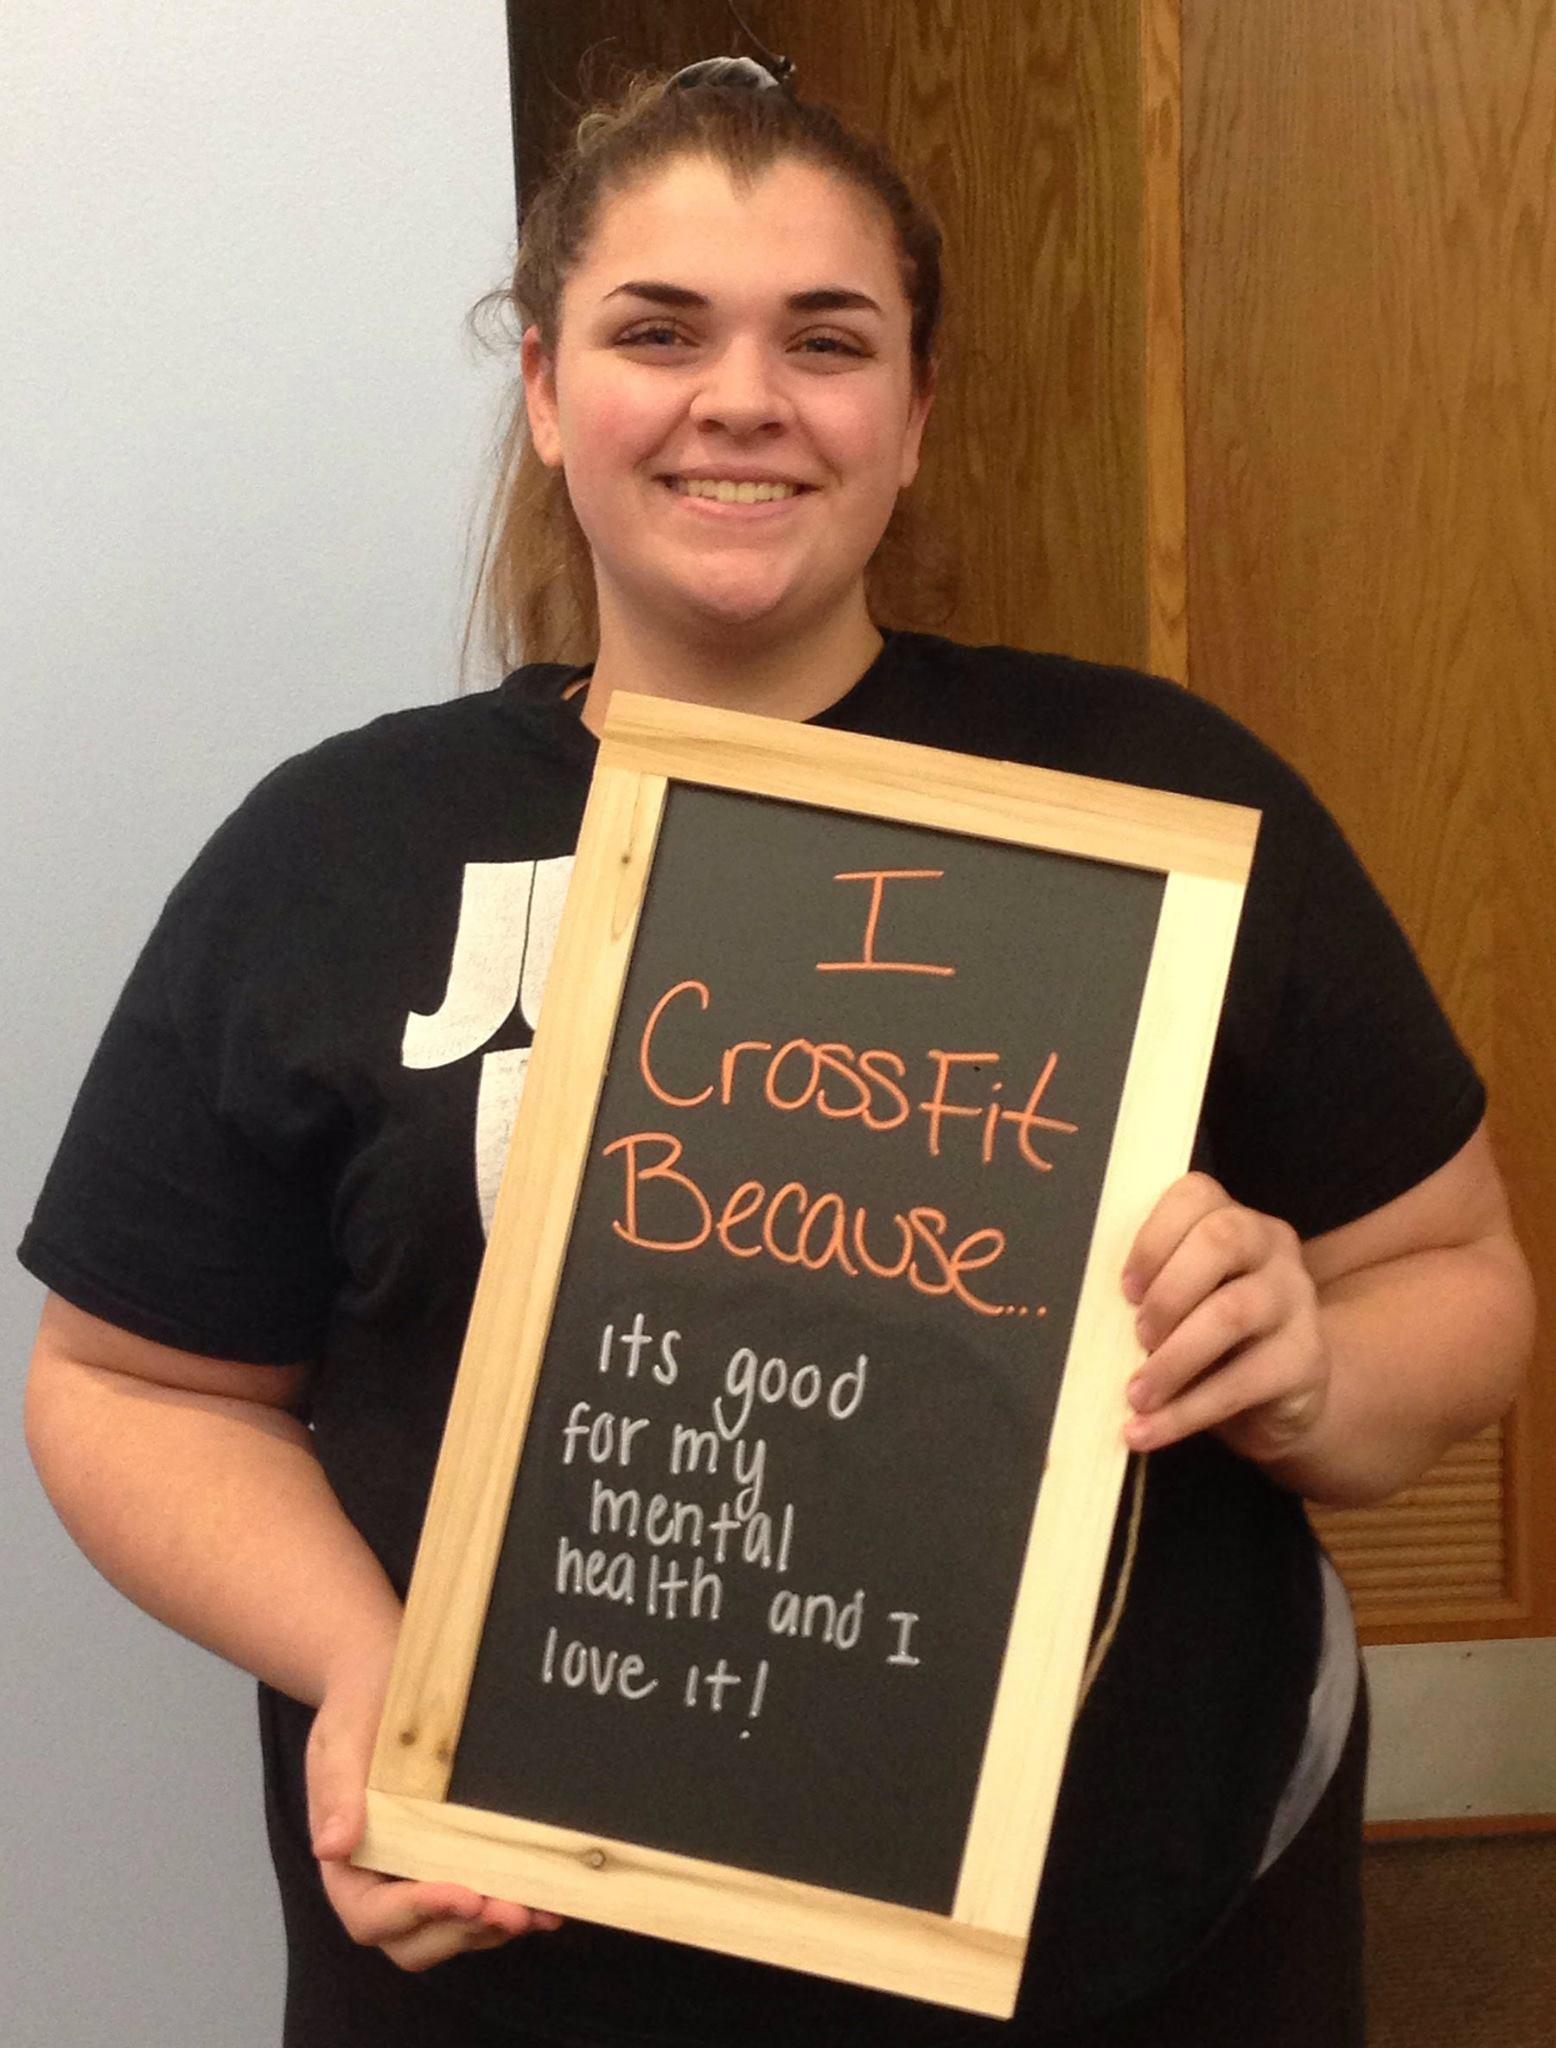 I
CrossFit
Because...
its good
for my
mental
health and I
love it!